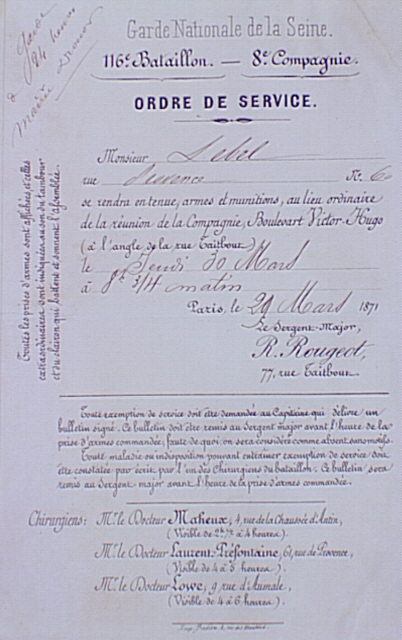 Garde 24 heures
à mairie Drouot
Garde Nationale de la Seine.
116e Bataillon. — 8e Compagnie.
ORDRE DE SERVICE.
Monsieur Lebel
rue No. 6
se rendra en tenue, armes et munitions, au lieu ordinaire
de la réunion de la Compagnie, Boulevart Victor-Hugo
(à l'angle de la rue Taitbout.)
le Jeudi 30 Mars
à 8h 3/4 matin
Paris, le 29 Mars 1871
Le Sergent-Major,
R. Rougeot,
77, rue Taitbout.
Toutes les prises d'armes sont affichées et celles
extraordinaires sont indiquées au son du tambour
et du clairon qui battent et sonnent l'assemblée.
Toute exemption de service doit être demandée au Capitaine qui délivre un
bulletin signé. Ce bulletin doit être remis au Sergent major avant l'heure de la
prise d'armes commandée, faute de quoi on sera considéré comme absent sans motifs.
Toute maladie ou indisposition pouvant entériner exemption de service doit
être constatée par écrit par l'un des Chirurgiens du bataillon. Ce bulletin sera
remis au Sergent-major avant l'heure de la prise d'armes commandée.
Chirurgiens: Mr. le Docteur Maheux, 4, rue de la Chaussée d'Antin,
(Visible de 2 h. 1/2 à 4 heures).
Mr. le Docteur Laurent-Préfontaine, 61, rue de Provence,
(Visible de 4 à 5 heures).
Mr. le Docteur Lowe, 9 rue d'Aumale,
(Visible de 4 à 6 heures).